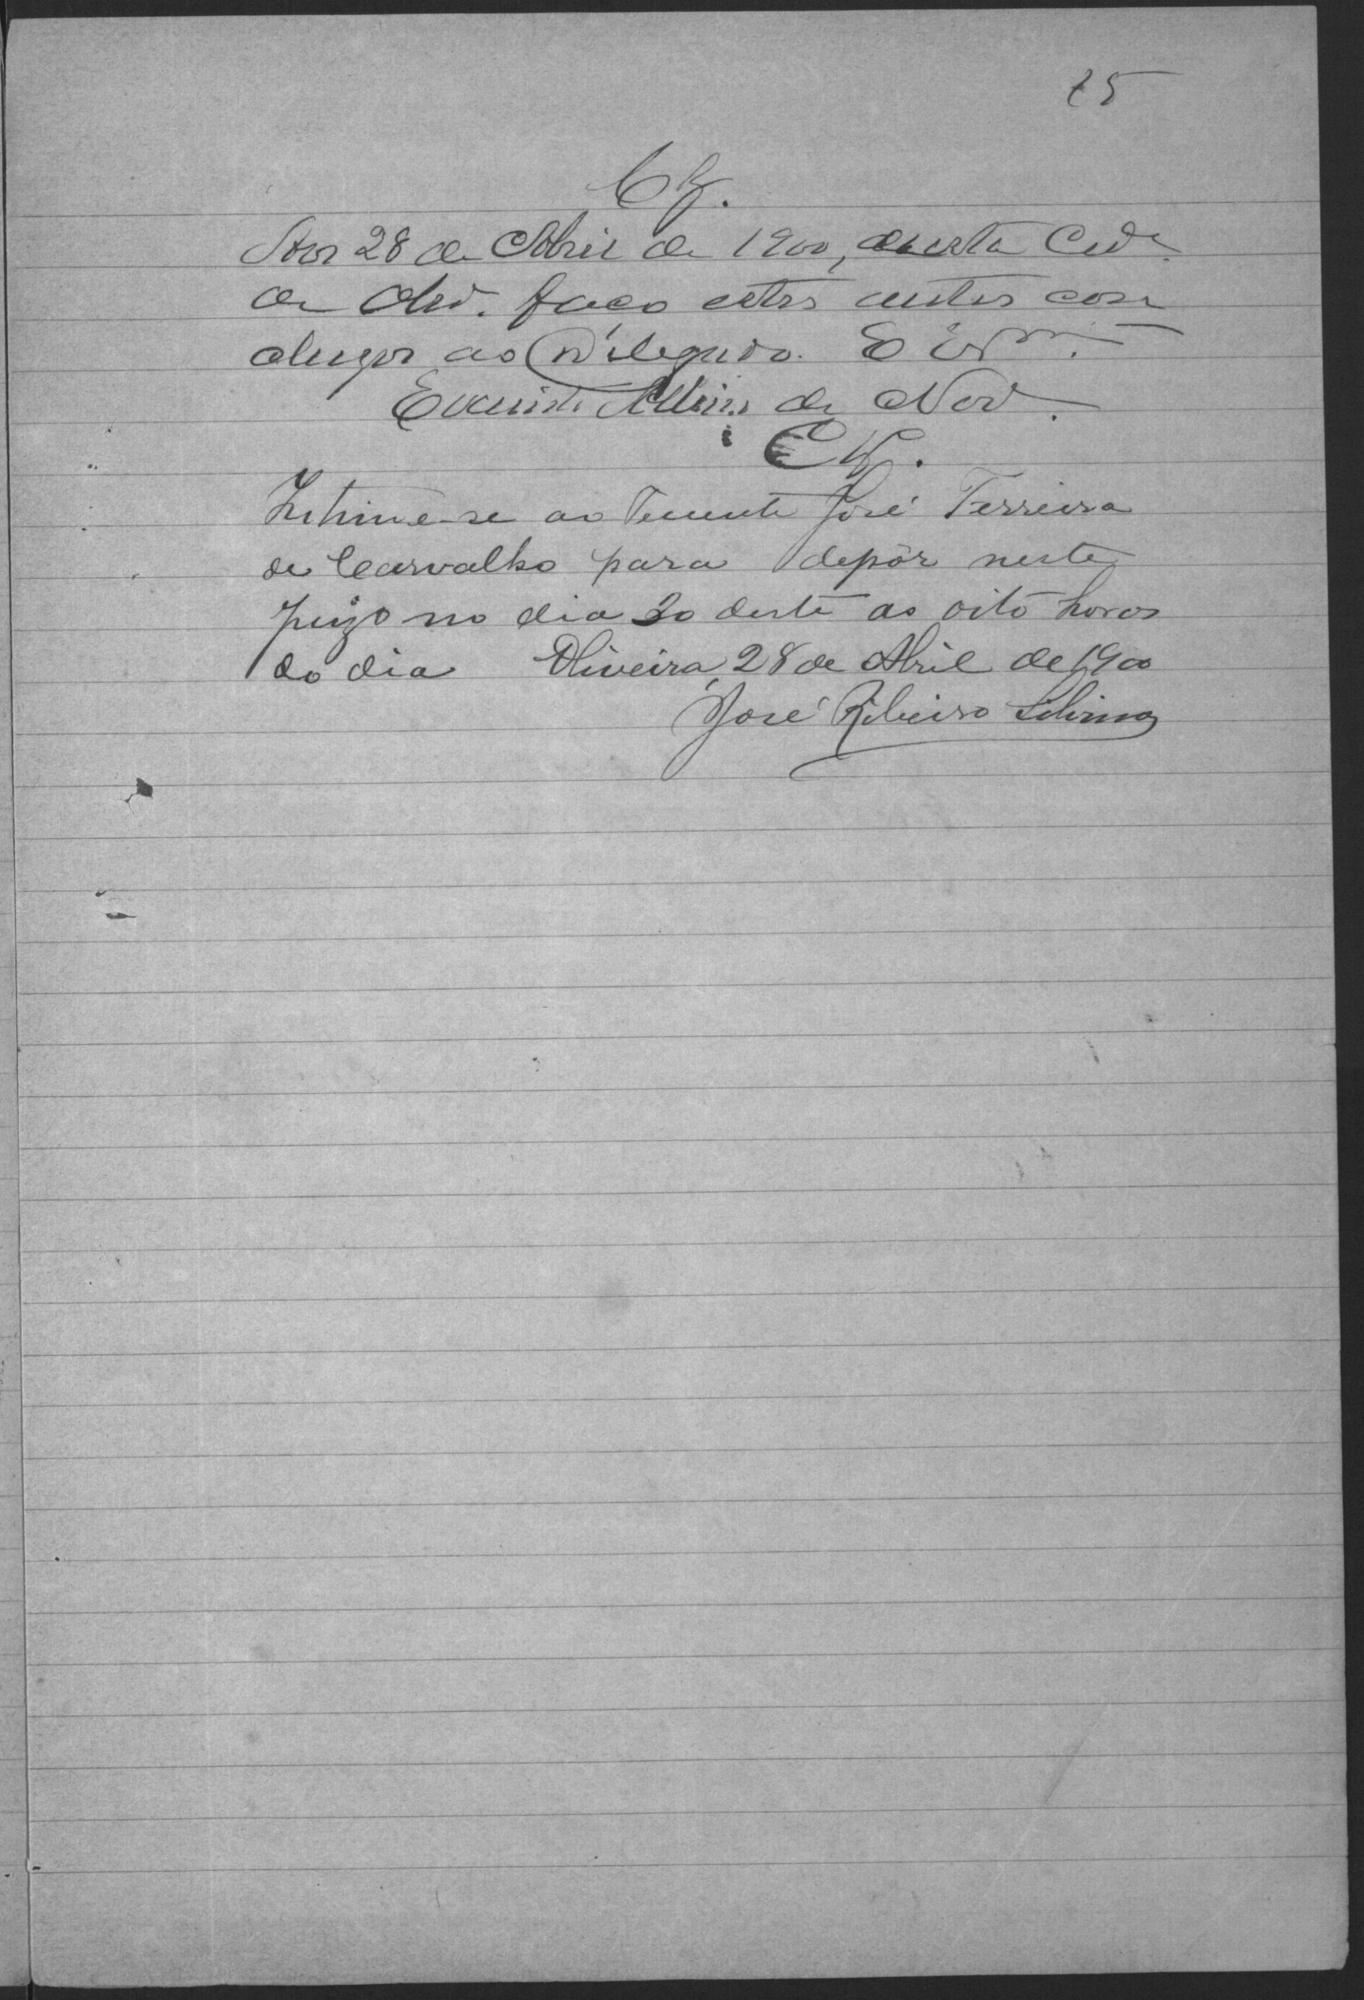 15
Clz.
Aos 28 de Abril de 1900, nesta Cid.e
de Oliv. faço estes autos con
clusos ao Delegado. E
de Nor.
Clz.
Intime-se ao Tenente José Ferreira
de Carvalho para depôr neste
Juizo no dia 30 deste as oito horas
do dia Oliveira, 28 de Abril de 1900
José Ribeiro